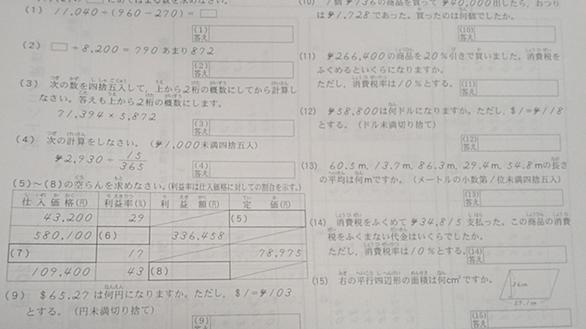 (1) 11.040÷(960-270)=□
(1)
答え
(2) □÷8.200=790あまり872
(2)
答え
(3) 次の数を四捨五入して、上から2桁の概数にしてから計算し
なさい。答えも上から2桁の概数にします。
71.394×5,872
(3)
答え
(4) 次の計算をしなさい。(¥1,000未満四捨五入)
¥2,930÷15/365
(4)
答え
(5)~(8)の空らんを求めなさい。(利益率は仕入価格に対しての割合を示す。)
仕入価格(円) 利益率(%) 利益額(円) 定価(円)
43,200 29 (5)
580,100 (6) 336,458
(7) 17 78,975
109,400 43 (8)
(9) $65.27は何円になりますか。ただし、$1=¥103
とする。(円未満切り捨て)
(9)
答え
(10) 1個¥136の商品を買って¥40,000出したら、おつり
は¥1,728であった。買ったのは何個でしたか。
(10)
答え
(11) ¥266,400の商品を20%引きで買いました。消費税を
ふくめるといくらになりますか。
ただし、消費税率は10%とする。
(11)
答え
(12) ¥58,800は何ドルになりますか。ただし、$1=¥118
とする。(ドル未満切り捨て)
(12)
答え
(13) 60.5m、13.7m、86.3m、29.4m、54.8mの長さ
の平均は何mですか。(メートルの小数第1位未満四捨五入)
(13)
答え
(14) 消費税をふくめて¥34,815支払った。この商品の消費
税をふくまない代金はいくらでしたか。
ただし、消費税率は10%とする。
(14)
答え
(15) 右の平行四辺形の面積は何cm²ですか。
(15)
答え